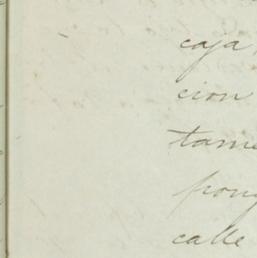 caja
cion
tame
pong
calle